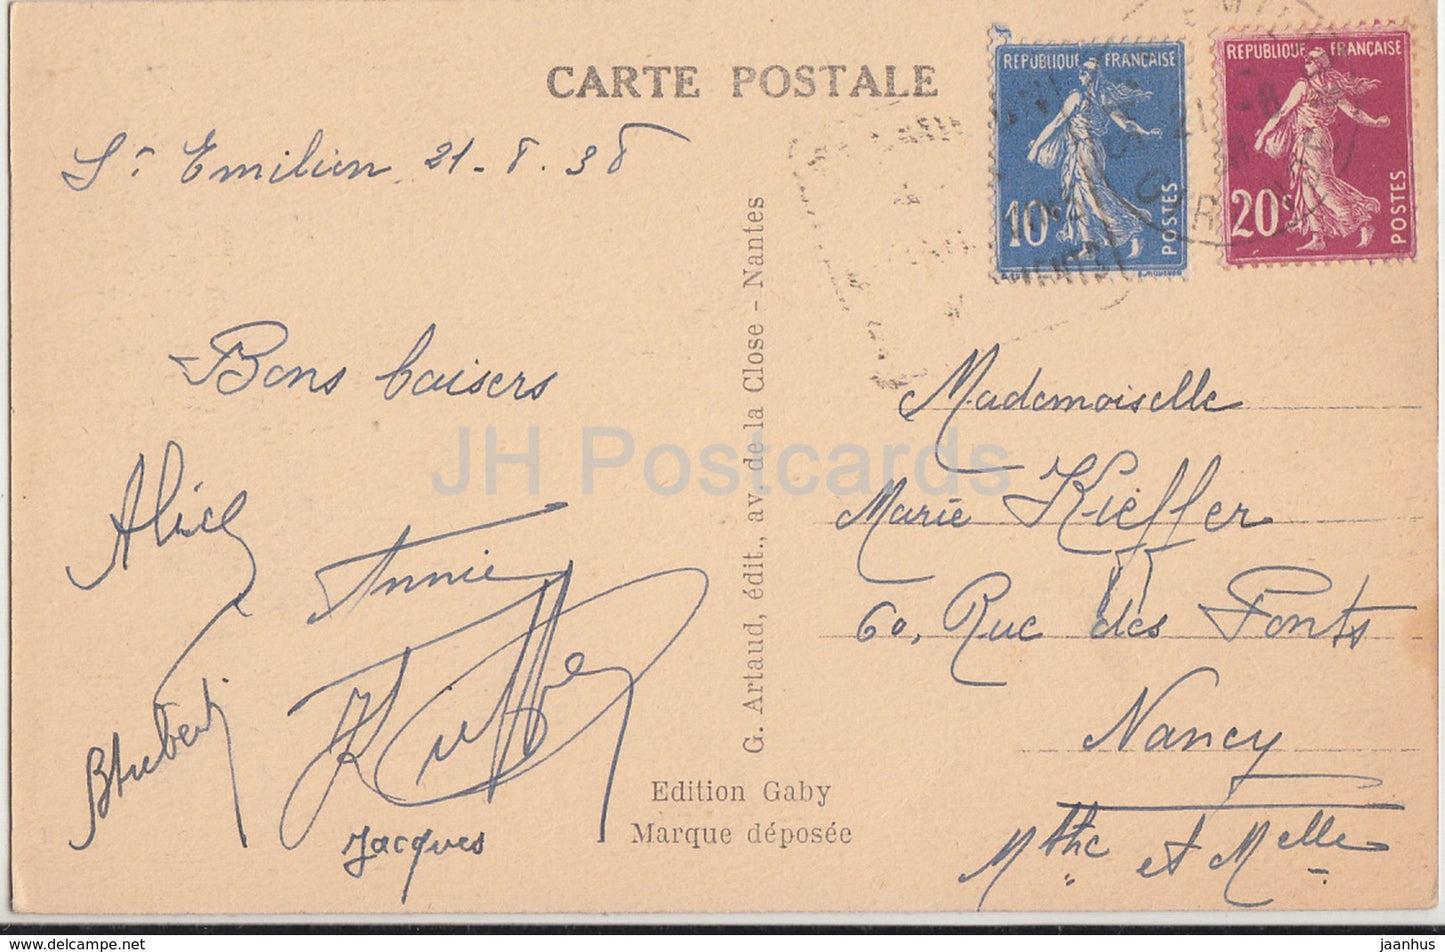 CARTE POSTALE
REPUBLIQUE FRANÇAISE
10c
POSTES
REPUBLIQUE FRANÇAISE
20c
POSTES
St Emilien 21-8.38
Bons baisers
Alice
Annie
Kieffer
Jacques
G. Artaud, édit., av. de la Close - Nantes
Edition Gaby
Marque déposée
Mademoiselle
Marie Kieffer
60, Rue des Ponts
Nancy
Mthe et Melle
JH Postcards
delcampe.net
jaanhus